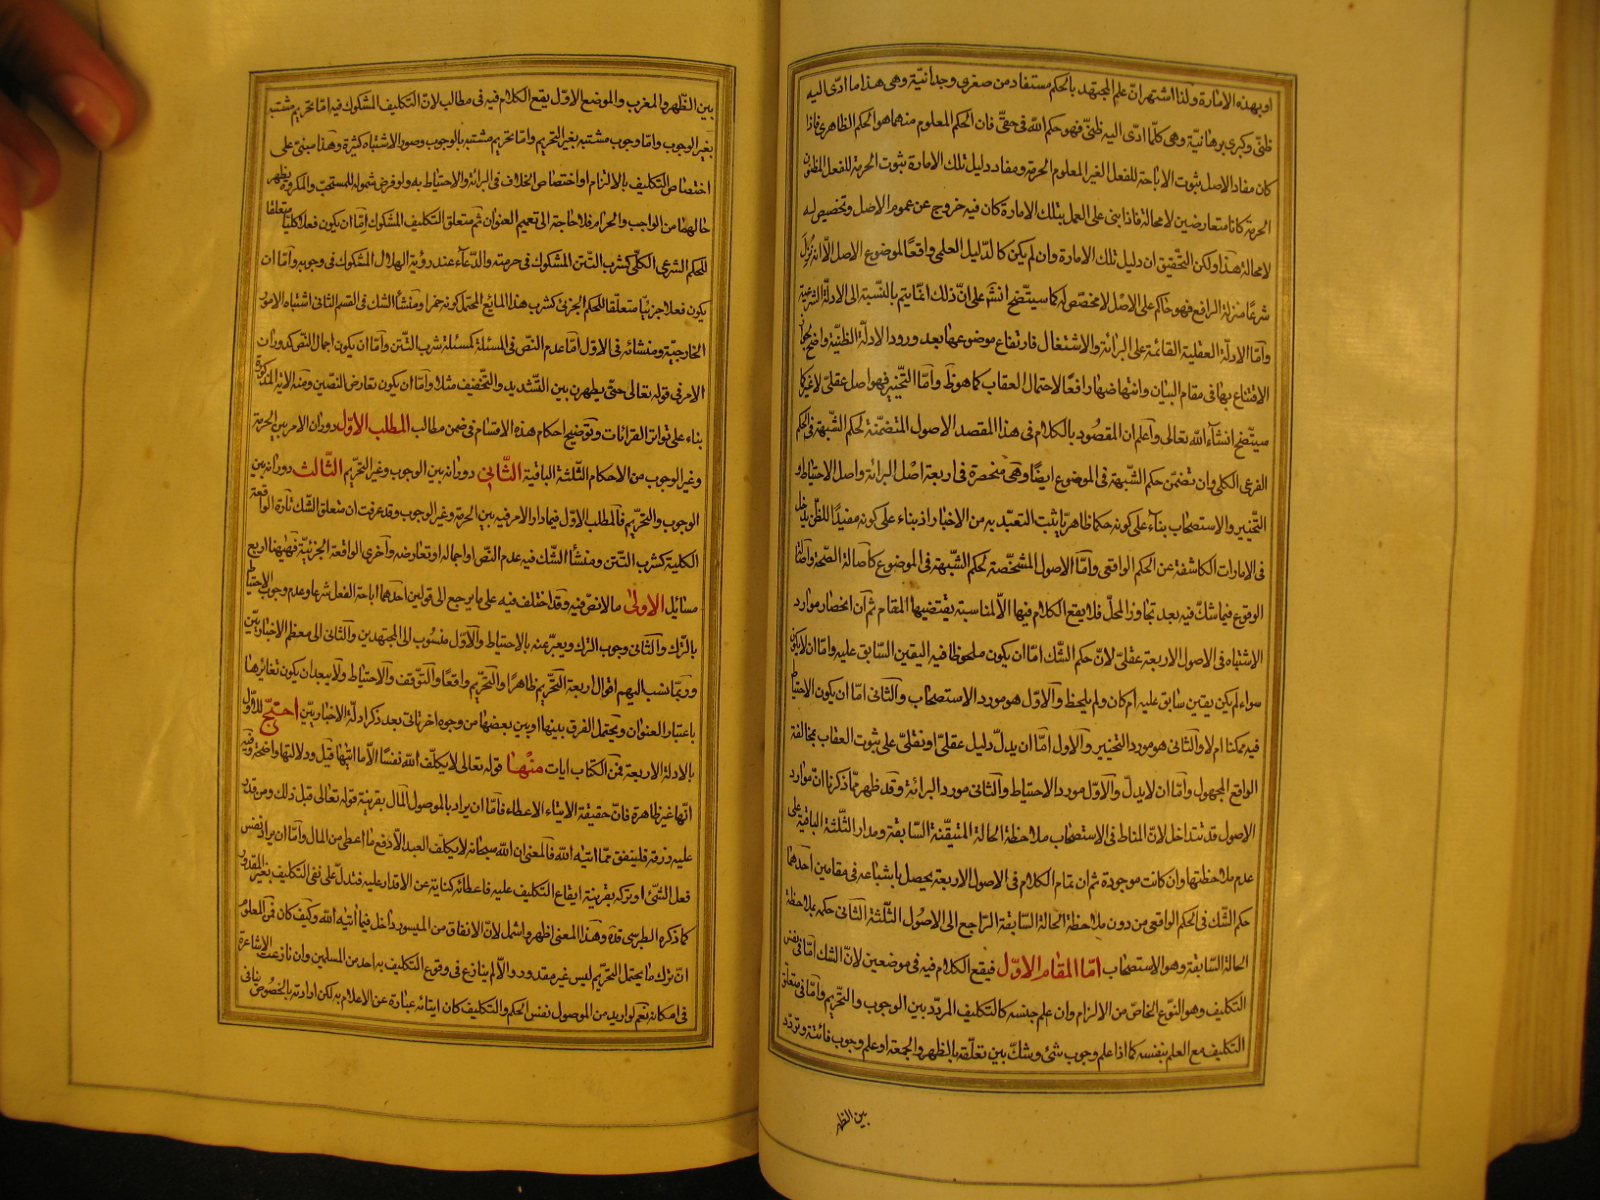 او بهذه الامارة ولذا اشتهر ان علم المجتهد بالحكم مستفاد من صغرى وجدانية وهى هذا ما ادى اليه
ظنى وكبرى برهانية وهى كلما ادى اليه ظنى فهو حكم الله فى حقى فان الحكم المعلوم منهما هو الحكم الظاهرى فاذا
كان مفاد الاصل ثبوت الاباحة للفعل الغير المعلوم الحرمة ومفاد دليل تلك الامارة ثبوت الحرمة للفعل المظنون
الحرمة كانا متعارضين لا محالة فاذا بنى على العمل بتلك الامارة كان فيه خروج عن عموم الاصل وتخصيص له
لا محالة هذا ولكن التحقيق ان دليل تلك الامارة وان لم يكن كالدليل العلمى رافعا لموضوع الاصل الا انه نزل
شرعا منزلة الرافع فهو حاكم على الاصل لا مخصص له كما سيتضح انشاء على ان ذلك انما يتم بالنسبة الى الادلة الشرعية
واما الادلة العقلية القائمة على البرائة والاشتغال فارتفاع موضوعها بعد ورود الادلة الظنية واضح لجواز
الاقتناع بها فى مقام البيان وانتهاضها رافعا لاحتمال العقاب كما هو ظ واما التخيير فهو اصل عقلى لا غير كما
سيتضح انشاء الله تعالى واعلم ان المقصود بالكلام فى هذا المقصد الاصول المتضمنة لحكم الشبهة فى الحكم
الفرعى الكلى وان تضمن حكم الشبهة فى الموضوع ايضا وهى منحصرة فى اربعة اصل البرائة واصل الاحتياط و
التخيير والاستصحاب بناء على كونه حكما ظاهريا ثبت التعبد به من الاخبار اذ بناء على كونه مفيدا للظن يدخل
فى الامارات الكاشفة عن الحكم الواقعى واما الاصول المشخصة لحكم الشبهة فى الموضوع كاصالة الصحة واصالة
الوقوع فيما شك فيه بعد تجاوز المحل فلا يقع الكلام فيها الا لمناسبة يقتضيها المقام ثم ان انحصار موارد
الاشتباه فى الاصول الاربعة عقلى لان حكم الشك اما ان يكون ملحوظا فيه اليقين السابق عليه واما ان لا يكون
سواء لم يكن يقين سابق عليه ام كان ولم يلحظ والاول هو مورد الاستصحاب والثانى اما ان يكون الاحتياط
فيه ممكنا ام لا والثانى هو مورد التخيير والاول اما ان يدل دليل عقلى او نقلى على ثبوت العقاب بمخالفة
الواقع المجهول واما ان لا يدل والاول مورد الاحتياط والثانى مورد البرائة وقد ظهر مما ذكرنا ان موارد
الاصول قد تتداخل لان المناط فى الاستصحاب ملاحظة الحالة المتيقنة السابقة ومدار الثلثة الباقية على
عدم ملاحظتها وان كانت موجودة ثم ان تمام الكلام فى الاصول الاربعة يحصل باشباعه فى مقامين احدهما
حكم الشك فى الحكم الواقعى من دون ملاحظة الحالة السابقة الراجع الى الاصول الثلثة الثانى حكمه بملاحظة
الحالة السابقة وهو الاستصحاب اما المقام الاول فيقع الكلام فيه فى موضعين لان الشك اما فى نفس
التكليف وهو النوع الخاص من الالزام وان علم جنسه كالتكليف المردد بين الوجوب والتحريم واما فى متعلق
التكليف مع العلم بنفسه كما اذا علم وجوب شئ وشك بين تعلقه بالظهر والجمعة او علم وجوب فائتة وتردد
بين الظهر
بين الظهر والمغرب والموضع الاول يقع الكلام فيه فى مطالب لان التكليف المشكوك فيه اما تحريم مشتبه
بغير الوجوب واما وجوب مشتبه بغير التحريم واما تحريم مشتبه بالوجوب وصور الاشتباه كثيرة وهذا مبنى على
اختصاص التكليف بالالزام او اختصاص الخلاف فى البرائة والاحتياط به ولو فرض شموله للمستحب والمكروه يظهر
حالهما من الواجب والحرام فلا حاجة الى تعميم العنوان ثم متعلق التكليف المشكوك اما ان يكون فعلا كليا متعلقا
للحكم الشرعى الكلى كشرب التتن المشكوك فى حرمته والدعاء عند رؤية الهلال المشكوك فى وجوبه واما ان
يكون فعلا جزئيا متعلقا للحكم الجزئى كشرب هذا المايع المحتمل كونه خمرا ومنشأ الشك فى القسم الثانى اشتباه الامور
الخارجية ومنشائه فى الاول اما عدم النص فى المسئلة كمسئلة شرب التتن واما ان يكون اجمال النص كدوران
الامر فى قوله تعالى حتى يطهرن بين التشديد والتخفيف مثلا واما ان يكون تعارض النصين ومنه الاية المذكورة
بناء على تواتر القرائات وتوضيح احكام هذه الاقسام فى ضمن مطالب المطلب الاول دوران الامر بين الحرمة
وغير الوجوب من الاحكام الثلثة الباقية الثانى دورانه بين الوجوب وغير التحريم الثالث دورانه بين
الوجوب والتحريم فالمطلب الاول فيما دار الامر فيه بين الحرمة وغير الوجوب وقد عرفت ان متعلق الشك تارة الواقعة
الكلية كشرب التتن ومنشأ الشك فيه عدم النص او اجماله او تعارضه واخرى الواقعة الجزئية فهيهنا اربع
مسائل الاولى ما لا نص فيه وقد اختلف فيه على ما يرجع الى قولين احدهما اباحة الفعل شرعا وعدم وجوب الاحتياط
بالترك والثانى وجوب الترك ويعبر عنه بالاحتياط والاول منسوب الى المجتهدين والثانى الى معظم الاخباريين
وربما نسب اليهم اقوال اربعة التحريم ظاهرا والتحريم واقعا والتوقف والاحتياط ولا يبعد ان يكون تغايرها
باعتبار العنوان ويحتمل الفرق بينها او بين بعضها من وجوه اخر تاتى بعد ذكر ادلة الاخباريين احتج للاول
بالادلة الاربعة فمن الكتاب ايات منها قوله تعالى لا يكلف الله نفسا الا ما اتيها قيل ودلالتها واضحة وفيه
انها غير ظاهرة فان حقيقة الايتاء الاعطاء فاما ان يراد بالموصول المال بقرينة قوله تعالى قبل ذلك ومن قدر
عليه رزقه فلينفق مما اتيه الله فالمعنى ان الله سبحانه لا يكلف العبد الا دفع ما اعطى من المال واما ان يراد نفس
فعل الشئ او تركه بقرينة ايقاع التكليف عليه فاعطائه كناية عن الاقدار عليه فتدل على نفى التكليف بغير المقدور
كما ذكره الطبرسى قده وهذا المعنى اظهر واشمل لان الانفاق من الميسور داخل فيما اتيه الله وكيف كان فمن المعلوم
ان ترك ما يحتمل التحريم ليس غير مقدور والا لم ينازع فى وقوع التكليف به احد من المسلمين وان نازعت الاشاعرة
فى امكانه نعم لو اريد من الموصول نفس الحكم والتكليف كان ايتائه عبارة عن الاعلام به لكن ارادته بالخصوص ينافى